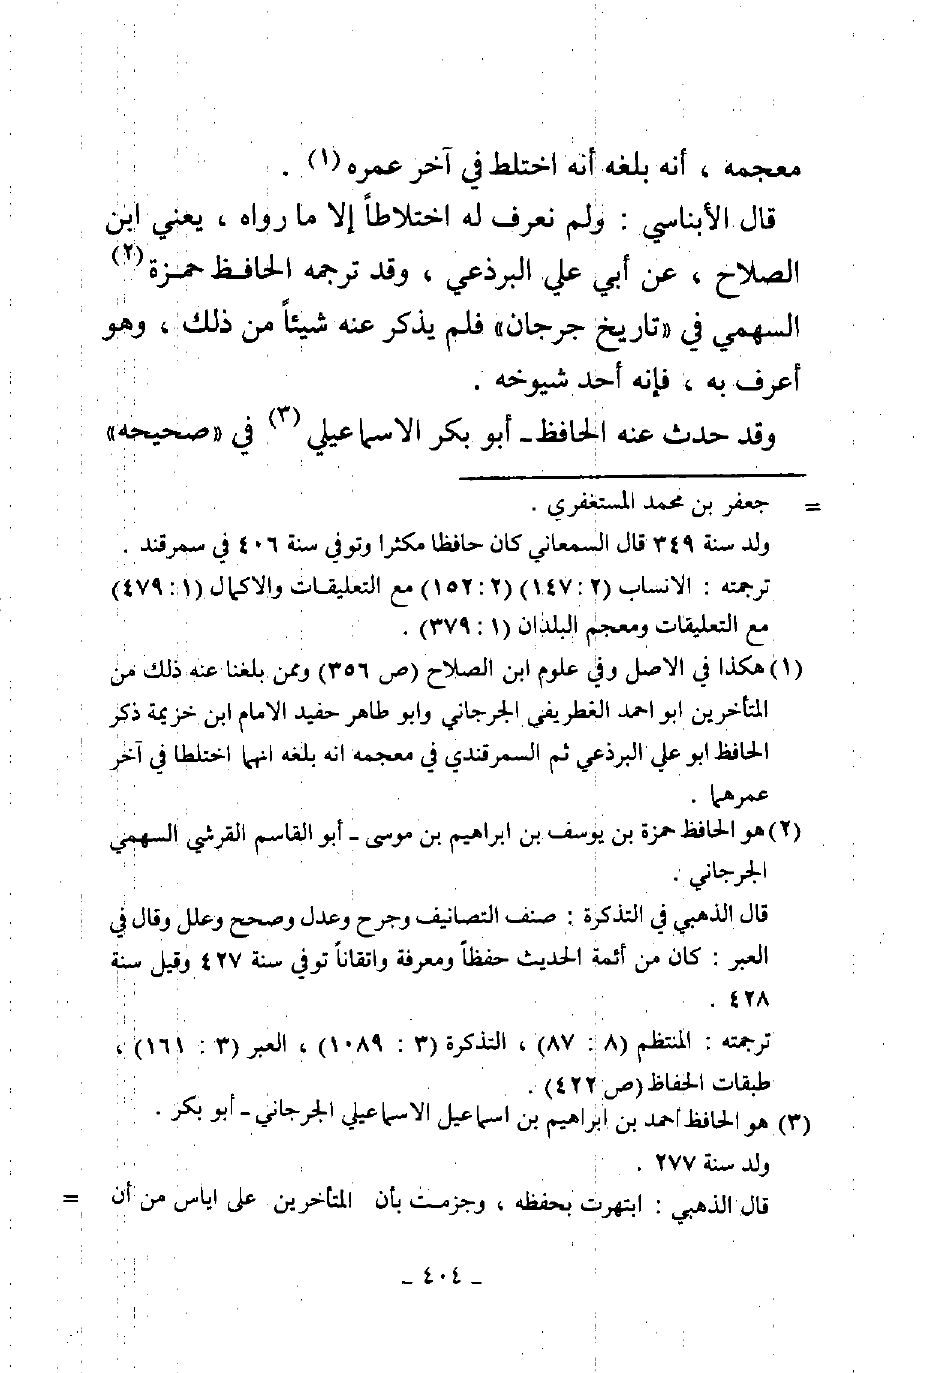 معجمه ، أنه بلغه أنه اختلط في آخر عمره (١) .
قال الأبناسي : ولم نعرف له اختلاطاً إلا ما رواه ، يعني ابن
الصلاح ، عن أبي علي البرذعي ، وقد ترجمه الحافظ حمزة (٢)
السهمي في «تاريخ جرجان» فلم يذكر عنه شيئاً من ذلك ، وهو
أعرف به ، فإنه أحد شيوخه .
وقد حدث عنه الحافظ ـ أبو بكر الاسماعيلي (٣) في «صحيحه»
= جعفر بن محمد المستغفري .
ولد سنة ٣٤٩ قال السمعاني كان حافظا مكثرا وتوفي سنة ٤٠٦ في سمرقند .
ترجمته : الانساب (٢ : ١٤٧) (٢ : ١٥٢) مع التعليقات والاكمال (١ : ٤٧٩)
مع التعليقات ومعجم البلدان (١ : ٣٧٩) .
(١) هكذا في الاصل وفي علوم ابن الصلاح (ص ٣٥٦) وممن بلغنا عنه ذلك من
المتأخرين ابو احمد الغطريفي الجرجاني وابو طاهر حفيد الامام ابن خزيمة ذكر
الحافظ ابو علي البرذعي ثم السمرقندي في معجمه انه بلغه انهما اختلطا في آخر
عمرهما .
(٢) هو الحافظ حمزة بن يوسف بن ابراهيم بن موسى ـ أبو القاسم القرشي السهمي
الجرجاني .
قال الذهبي في التذكرة : صنف التصانيف وجرح وعدل وصحح وعلل وقال في
العبر : كان من أئمة الحديث حفظاً ومعرفة واتقاناً توفي سنة ٤٢٧ وقيل سنة
٤٢٨ .
ترجمته : المنتظم (٨ : ٨٧) ، التذكرة (٣ : ١٠٨٩) ، العبر (٣ : ١٦١) ،
طبقات الحفاظ (ص ٤٢٢) .
(٣) هو الحافظ أحمد بن ابراهيم بن اسماعيل الاسماعيلي الجرجاني ـ أبو بكر .
ولد سنة ٢٧٧ .
قال الذهبي : ابتهرت بحفظه ، وجزمت بأن المتأخرين على اياس من أن =
ـ ٤٠٤ ـ